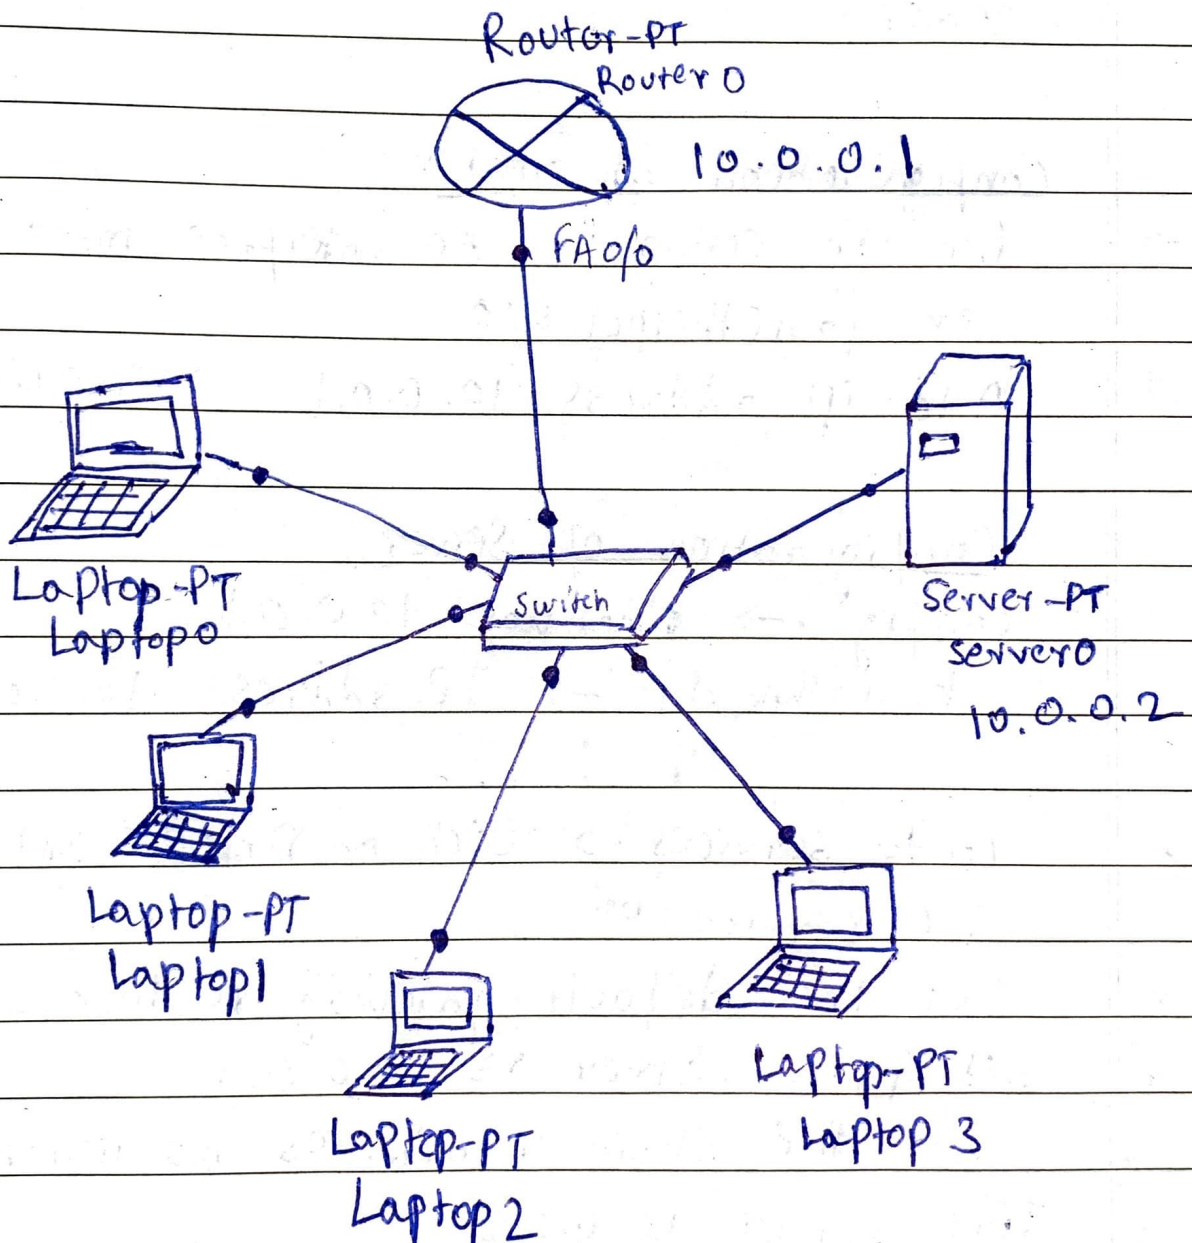 Router-PT
Router 0
10.0.0.1
FA0/0
Laptop-PT
Laptop0
Switch
Server-PT
Server0
10.0.0.2
Laptop-PT
Laptop1
Laptop-PT
Laptop 3
Laptop-PT
Laptop 2